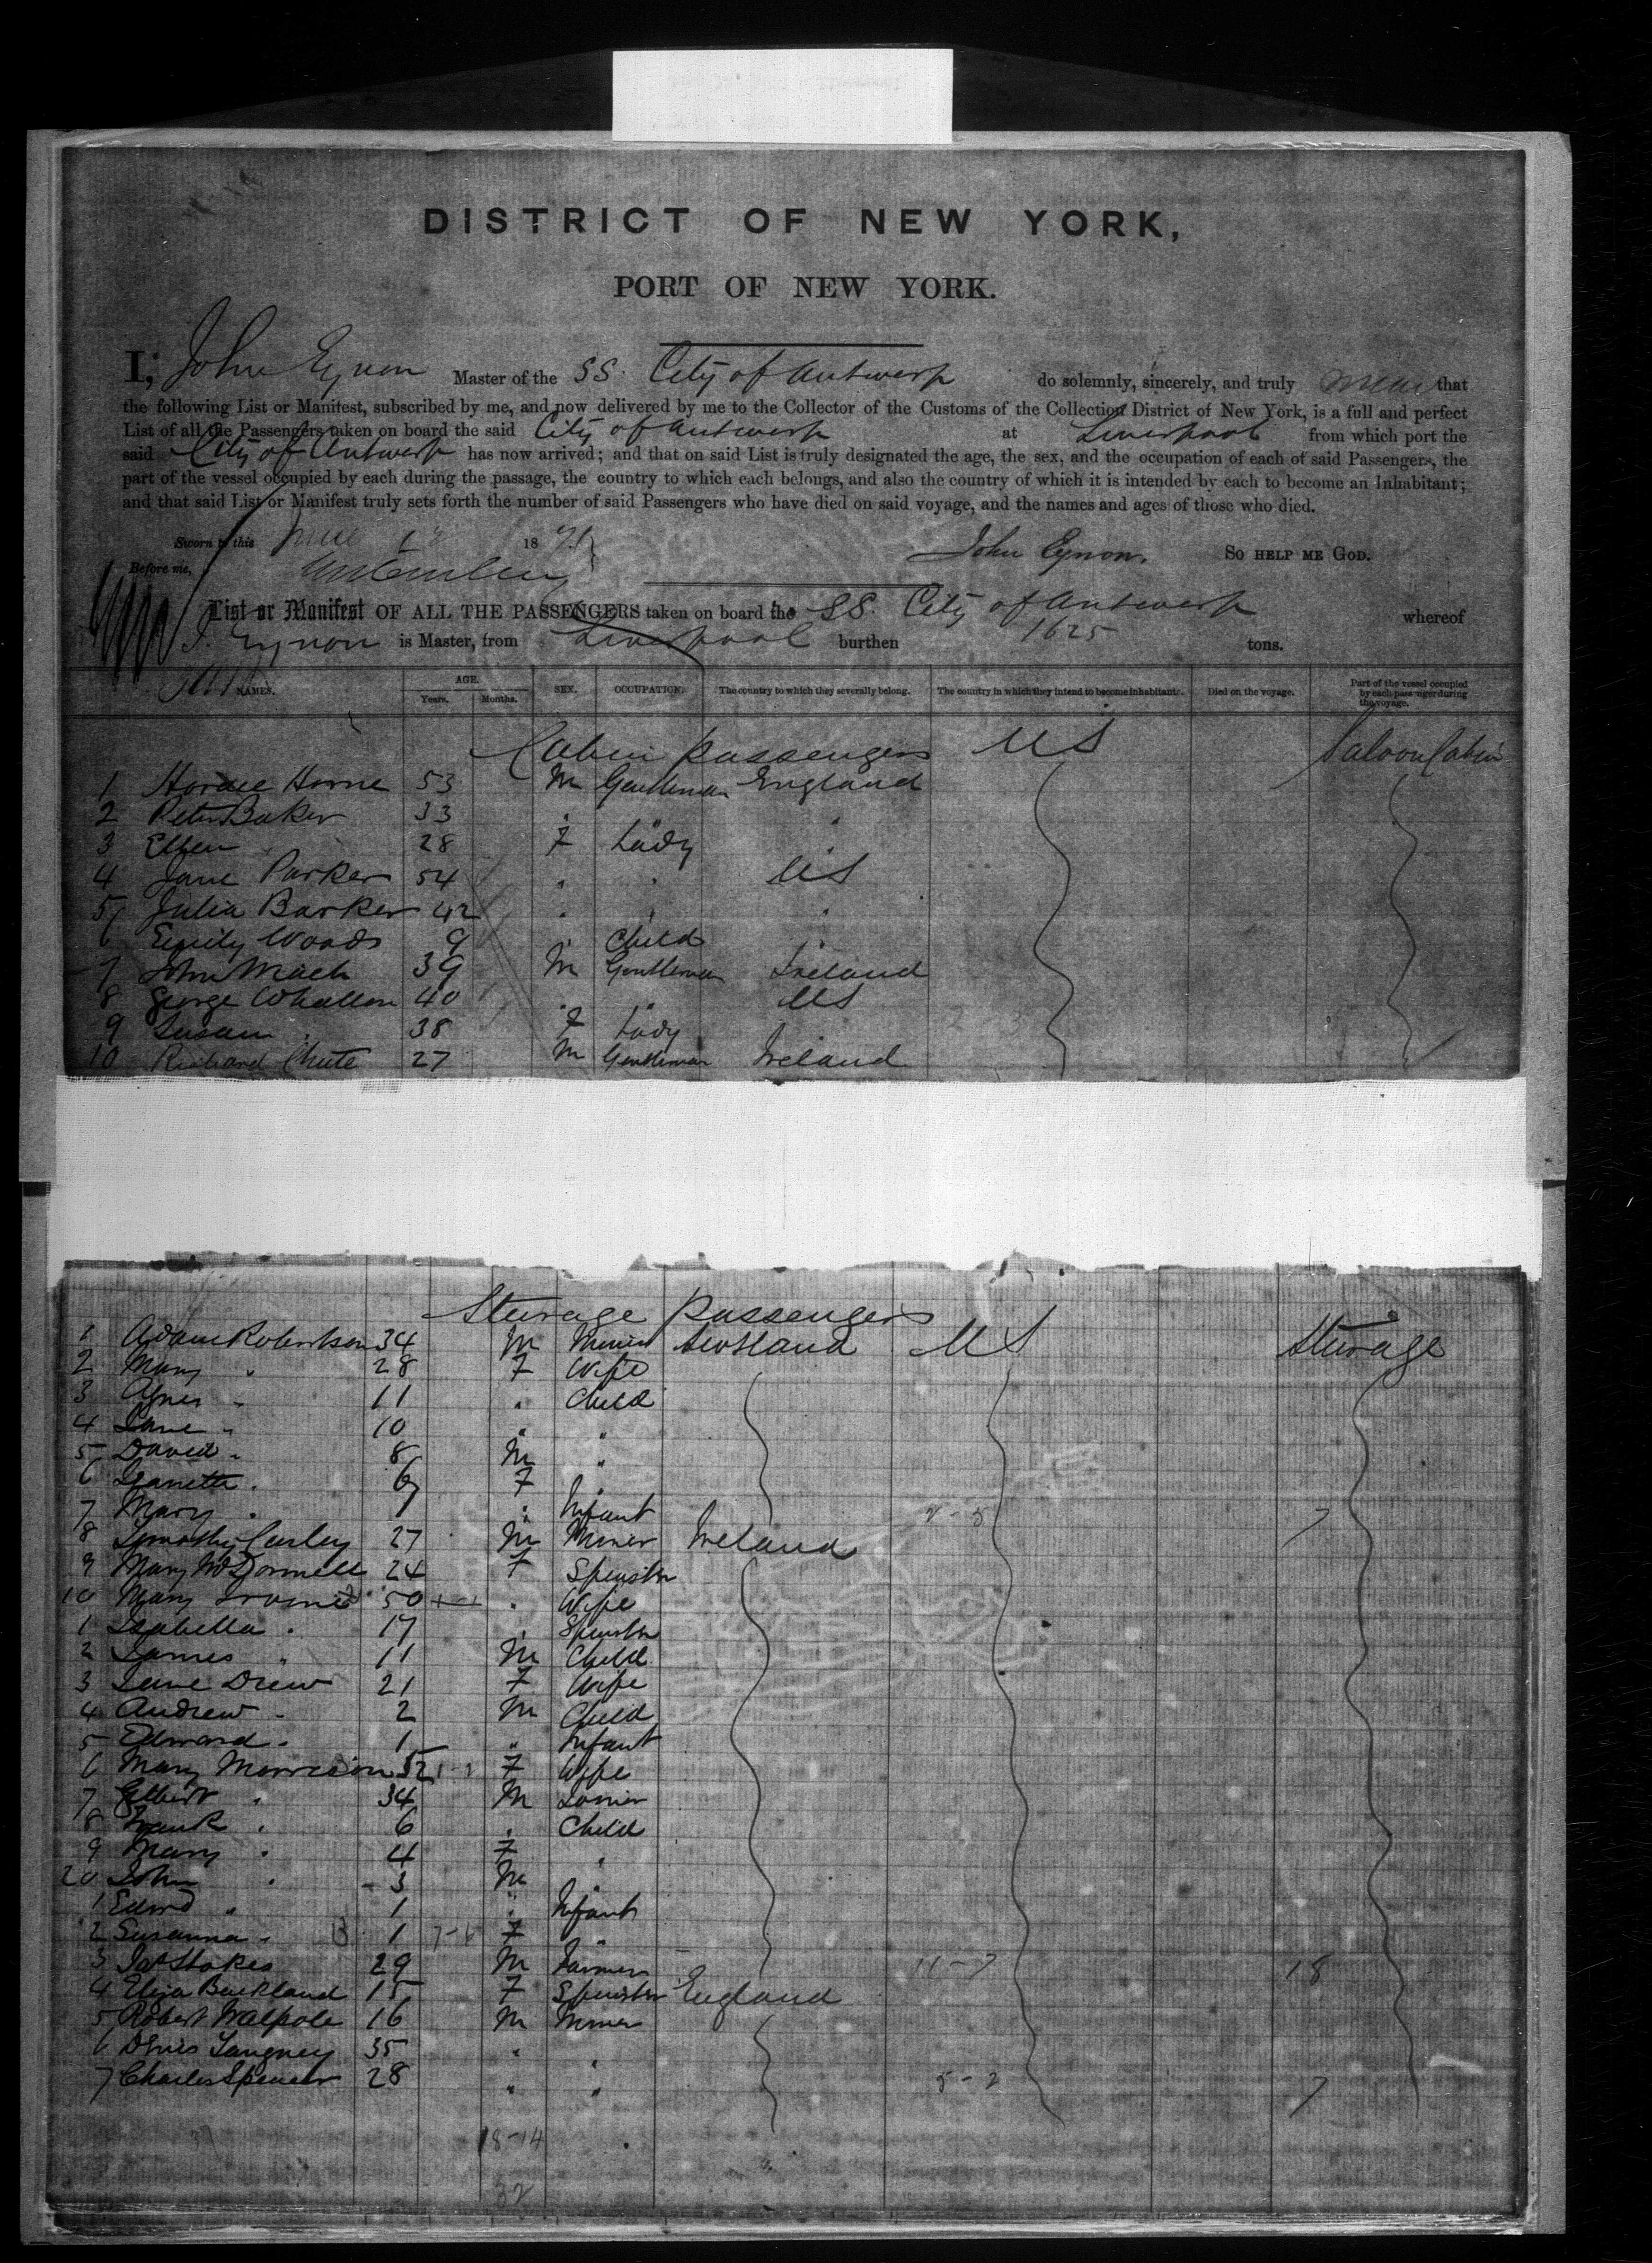 DISTRICT OF NEW YORK,
PORT OF NEW YORK.
I, John Eynon Master of the SS. City of Antwerp do solemnly, sincerely, and truly swear that
the following List or Manifest, subscribed by me, and now delivered by me to the Collector of the Customs of the Collection District of New York, is a full and perfect
List of all the Passengers taken on board the said City of Antwerp at Liverpool from which port the
said City of Antwerp has now arrived; and that on said List is truly designated the age, the sex, and the occupation of each of said Passengers, the
part of the vessel occupied by each during the passage, the country to which each belongs, and also the country of which it is intended by each to become an Inhabitant;
and that said List or Manifest truly sets forth the number of said Passengers who have died on said voyage, and the names and ages of those who died.
Sworn to this June 18 71 John Eynon. SO HELP ME GOD.
Before me,
List or Manifest OF ALL THE PASSENGERS taken on board the SS. City of Antwerp whereof
J. Eynon is Master, from Liverpool burthen 1625 tons.
NAMES. AGE. Years. Months. SEX. OCCUPATION. The country to which they severally belong. The country in which they intend to become inhabitants. Died on the voyage. Part of the vessel occupied by each passenger during the voyage.
Cabin passengers US Saloon Cabin
1 Horace Horne 53 M Gentleman England
2 Peter Baker 33 " " "
3 Ellen " 28 F Lady
4 Jane Parker 54 " " US
5 Julia Barker 42 " " "
6 Emily Woods 9 " Child "
7 John Mack 39 M Gentleman Ireland
8 George Whallon 40 " " US
9 Susan " 38 F Lady
10 Richard Chute 27 M Gentleman Ireland
Sturage passengers
1 Adam Robertson 34 M Miner Scotland US Sturage
2 Mary " 28 F Wife
3 Agnes " 11 " Child
4 Jane " 10 " "
5 David " 8 M "
6 Janette " 6 F "
7 Mary " 1 " Infant 2-5 7
8 Timothy Curley 27 M Miner Ireland
9 Mary McDonnell 24 F Spinster
10 Mary 50 " Wife
1 Isabella " 17 " Spinster
2 James " 11 M Child
3 Jane Drew 21 F Wife
4 Andrew " 2 M Child
5 Edward " 1 " Infant
6 Mary Morrison 52 F Wife
7 Gilbert " 34 M
8 Frank " 6 " Child
9 Mary " 4 F "
20 John " 3 M "
1 Edwd " 1 " Infant
2 Susanna " 1 F "
3 Jas Stokes 29 M Farmer 11-7 18
4 Eliza Buckland 15 F Spinster England
5 Robert Walpole 16 M Miner
6 Denis Tangney 35 " "
7 Charles Spencer 28 " " 5-2 7
18-14
32